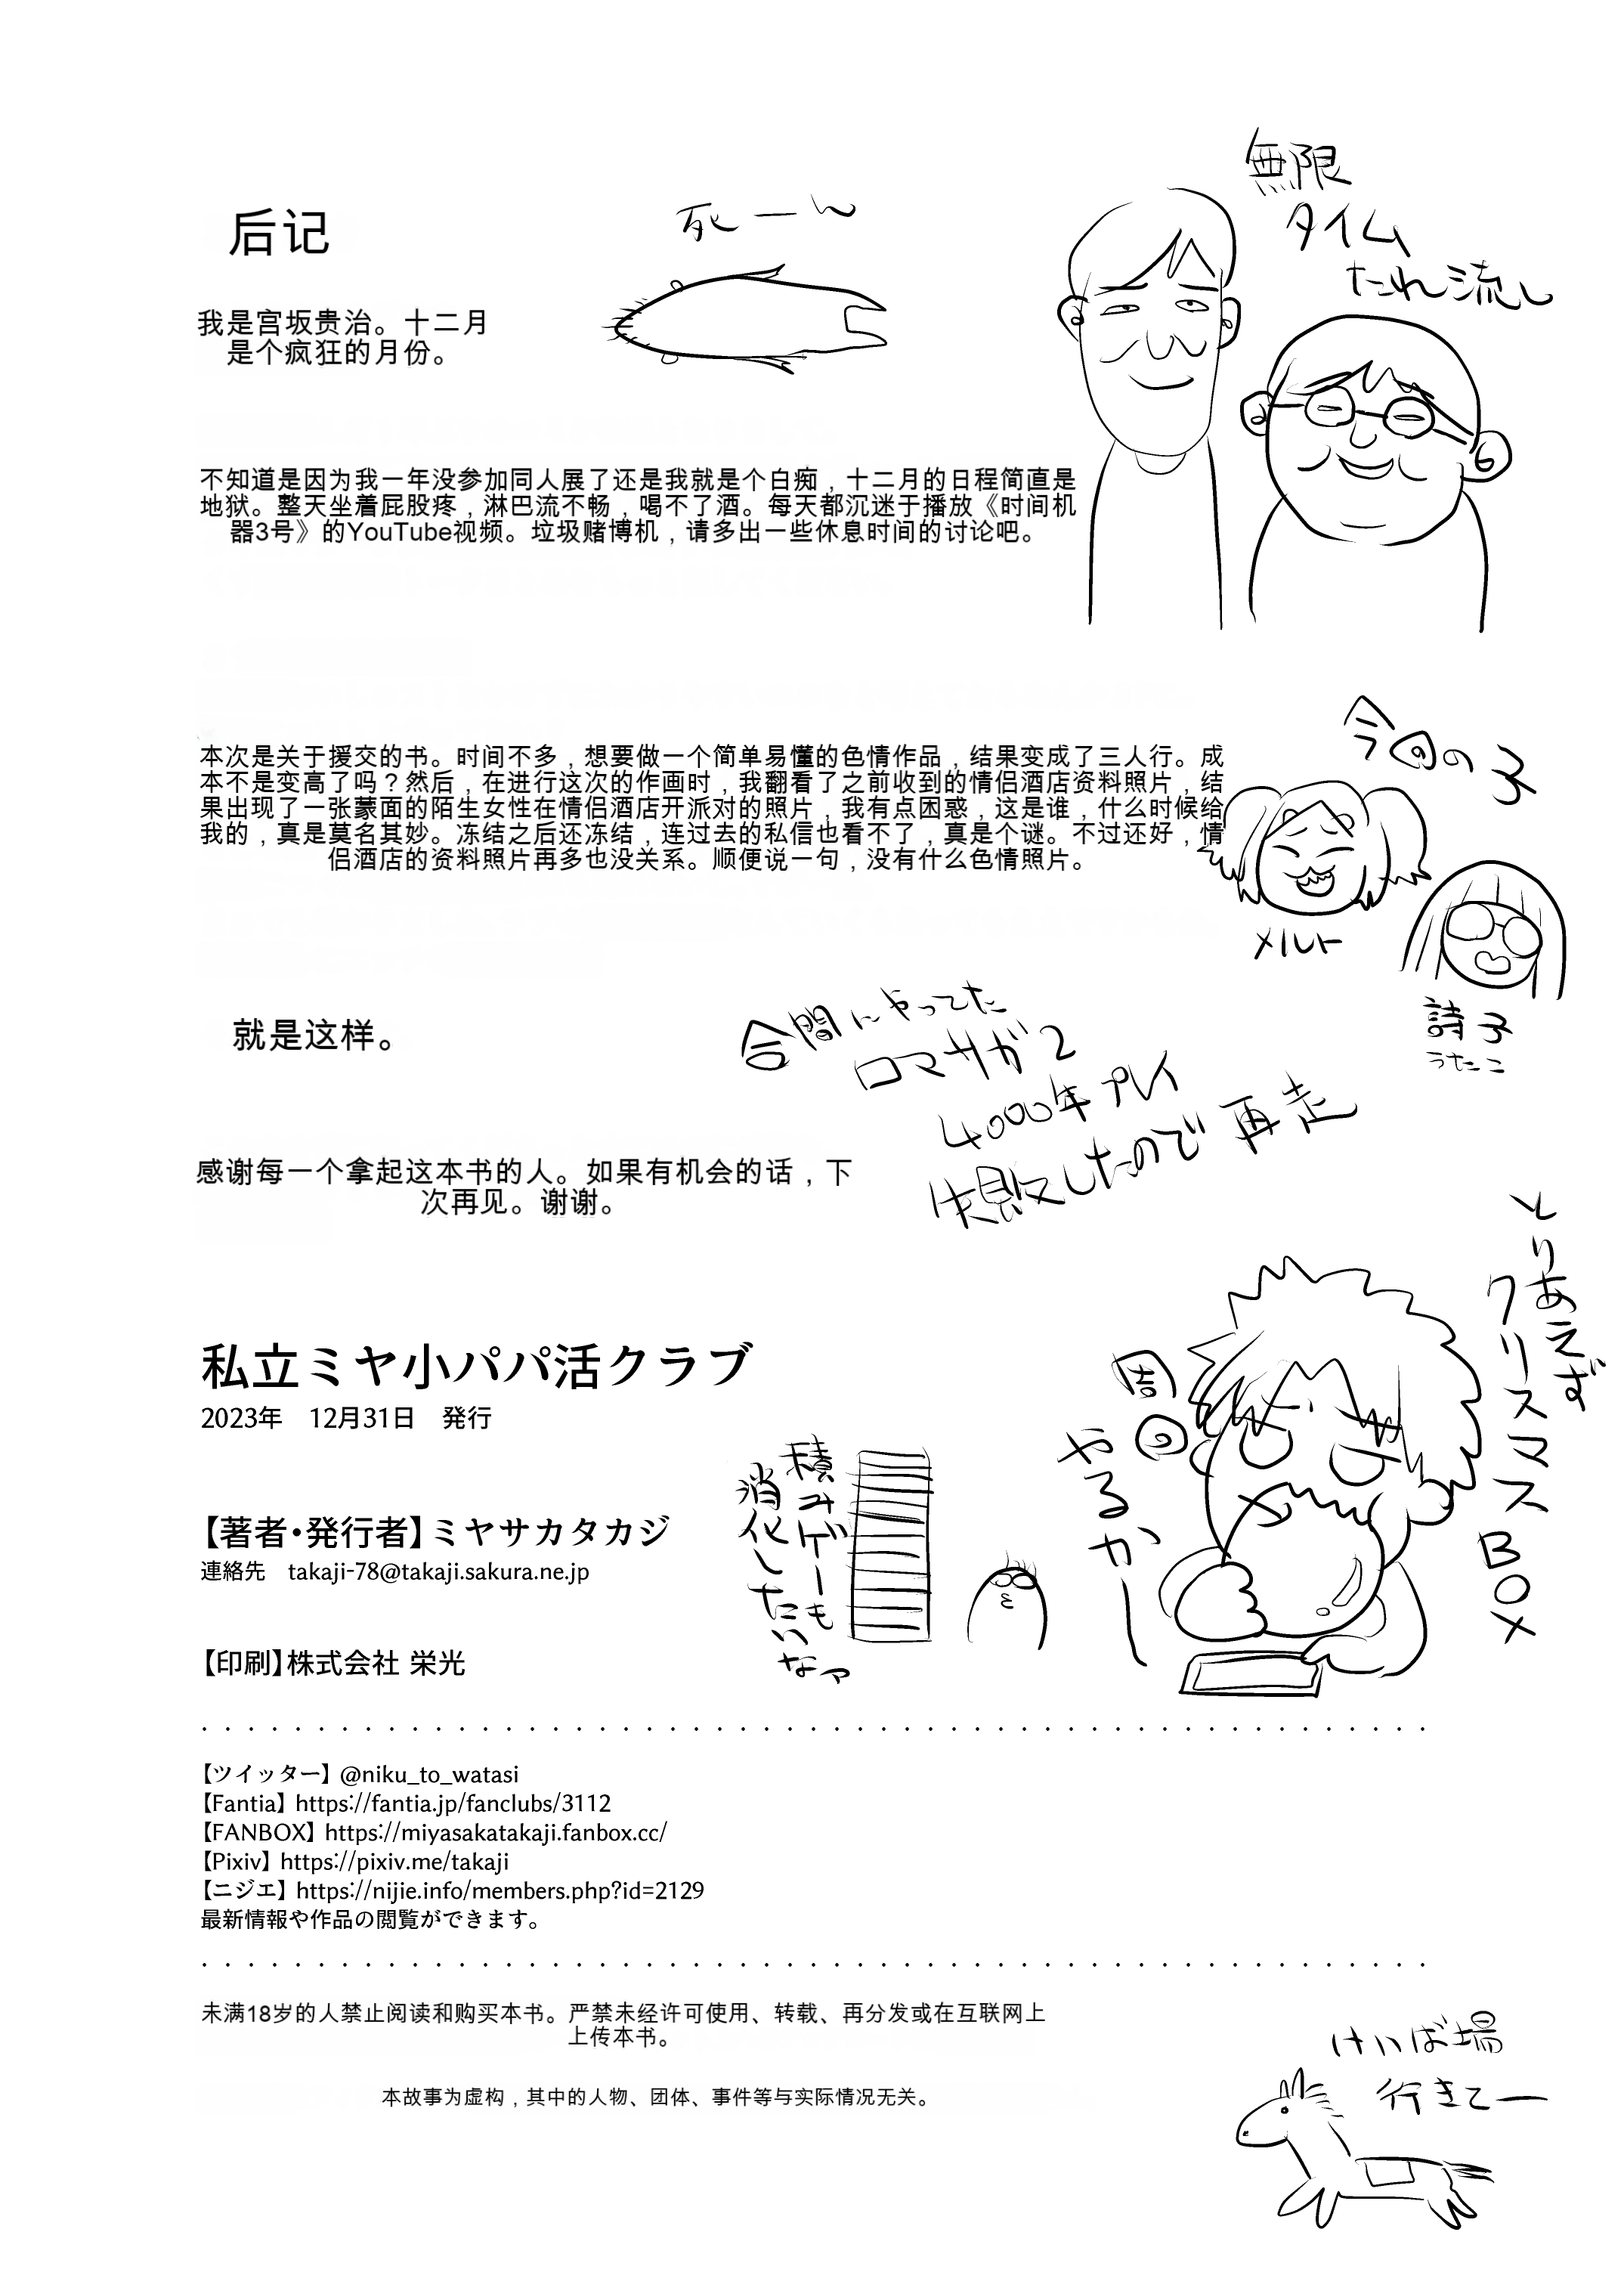 后记
死ーん
無限
タイム
たれ流し
我是宫坂贵治。十二月
是个疯狂的月份。
不知道是因为我一年没参加同人展了还是我就是个白痴，十二月的日程简直是
地狱。整天坐着屁股疼，淋巴流不畅，喝不了酒。每天都沉迷于播放《时间机
器3号》的YouTube视频。垃圾赌博机，请多出一些休息时间的讨论吧。
本次是关于援交的书。时间不多，想要做一个简单易懂的色情作品，结果变成了三人行。成
本不是变高了吗？然后，在进行这次的作画时，我翻看了之前收到的情侣酒店资料照片，结
果出现了一张蒙面的陌生女性在情侣酒店开派对的照片，我有点困惑，这是谁，什么时候给
我的，真是莫名其妙。冻结之后还冻结，连过去的私信也看不了，真是个谜。不过还好，情
侣酒店的资料照片再多也没关系。顺便说一句，没有什么色情照片。
今回の子
メルト
詩子
うたこ
就是这样。
合間にやってた
ロマサガ2
4000年プレイ
失敗したので再走
感谢每一个拿起这本书的人。如果有机会的话，下
次再见。谢谢。
とりあえず
クリスマスBOX
周回
やるかー
積みゲーも
消化したいなァ
私立ミヤ小パパ活クラブ
2023年　12月31日　発行
【著者・発行者】ミヤサカタカジ
連絡先　takaji-78@takaji.sakura.ne.jp
【印刷】株式会社 栄光
【ツイッター】@niku_to_watasi
【Fantia】https://fantia.jp/fanclubs/3112
【FANBOX】https://miyasakatakaji.fanbox.cc/
【Pixiv】https://pixiv.me/takaji
【ニジエ】https://nijie.info/members.php?id=2129
最新情報や作品の閲覧ができます。
未满18岁的人禁止阅读和购买本书。严禁未经许可使用、转载、再分发或在互联网上
上传本书。
本故事为虚构，其中的人物、团体、事件等与实际情况无关。
けいば場
行きてー